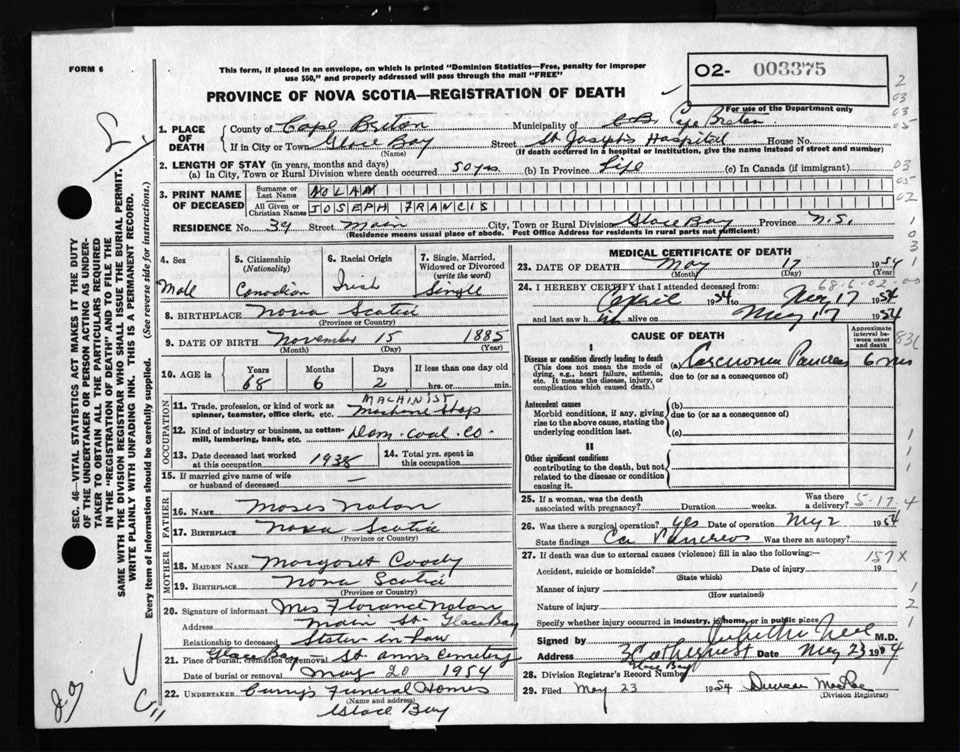 FORM 6
This form, if placed in an envelope, on which is printed "Dominion Statistics—Free, penalty for improper
use $50," and properly addressed will pass through the mail "FREE"
O2- 003375
PROVINCE OF NOVA SCOTIA—REGISTRATION OF DEATH
For use of the Department only
1. PLACE OF DEATH
County of Cape Breton Municipality of C.B. Cape Breton
If in City or Town Glace Bay Street St Joseph's Hospital House No.
(Name) (If death occurred in a hospital or institution, give the name instead of street and number)
2. LENGTH OF STAY (in years, months and days)
(a) In City, Town or Rural Division where death occurred 50 yrs (b) In Province Life (c) In Canada (if immigrant)
3. PRINT NAME OF DECEASED
Surname or Last Name NOLAN
All Given or Christian Names JOSEPH FRANCIS
RESIDENCE No. 39 Street Main City, Town or Rural Division Glace Bay Province N.S.
(Residence means usual place of abode. Post Office Address for residents in rural parts not sufficient)
4. Sex Male
5. Citizenship (Nationality) Canadian
6. Racial Origin Irish
7. Single, Married, Widowed or Divorced (write the word) Single
8. BIRTHPLACE Nova Scotia
(Province or Country)
9. DATE OF BIRTH November 15 1885
(Month) (Day) (Year)
10. AGE in Years 68 Months 6 Days 2 If less than one day old hrs. or min.
OCCUPATION
11. Trade, profession, or kind of work as spinner, teamster, office clerk, etc. MACHINIST Machine Shop
12. Kind of industry or business, as cotton-mill, lumbering, bank, etc. Dom. Coal Co.
13. Date deceased last worked at this occupation 1938
14. Total yrs. spent in this occupation
15. If married give name of wife or husband of deceased —
FATHER
16. Name Moses Nolan
17. Birthplace Nova Scotia
(Province or Country)
MOTHER
18. Maiden Name Margaret Coady
19. Birthplace Nova Scotia
(Province or Country)
20. Signature of informant Mrs Florance Nolan
Address Main St. Glace Bay
Relationship to deceased Sister-in-law
21. Place of burial, cremation or removal Glace Bay - St Anns Cemetery
Date of burial or removal May 20 1954
22. UNDERTAKER Curry's Funeral Homes
(Name and address)
Glace Bay
MEDICAL CERTIFICATE OF DEATH
23. DATE OF DEATH May 17 1954
(Month) (Day) (Year)
68-6-02-00
24. I HEREBY CERTIFY that I attended deceased from:
April 1954 to May 17 1954
and last saw h im alive on May 17 1954
CAUSE OF DEATH
Approximate interval between onset and death
I
Disease or condition directly leading to death (a) Carcinoma Pancreas 6 mos
(This does not mean the mode of dying, e.g., heart failure, asthenia, etc. It means the disease, injury, or complication which caused death.)
due to (or as a consequence of)
Antecedent causes (b)
Morbid conditions, if any, giving rise to the above cause, stating the underlying condition last.
due to (or as a consequence of)
(c)
II
Other significant conditions
contributing to the death, but not related to the disease or condition causing it.
25. If a woman, was the death associated with pregnancy? Duration weeks. Was there a delivery? 5-17.4
26. Was there a surgical operation? yes Date of operation May 2 1954
State findings Ca Pancreas Was there an autopsy?
27. If death was due to external causes (violence) fill in also the following:— 157X
Accident, suicide or homicide? Date of injury 19
(State which)
Manner of injury
(How sustained)
Nature of injury
Specify whether injury occurred in industry, in home, or in public place
Signed by M.D.
Address Glace Bay Date May 23 1954
28. Division Registrar's Record Number
29. Filed May 23 1954
(Division Registrar)
SEC. 46—VITAL STATISTICS ACT MAKES IT THE DUTY
OF THE UNDERTAKER OR PERSON ACTING AS UNDER-
TAKER TO OBTAIN ALL THE PARTICULARS REQUIRED
IN THE "REGISTRATION OF DEATH" AND TO FILE THE
SAME WITH THE DIVISION REGISTRAR WHO SHALL ISSUE THE BURIAL PERMIT.
WRITE PLAINLY WITH UNFADING INK. THIS IS A PERMANENT RECORD.
Every item of information should be carefully supplied. (See reverse side for instructions.)